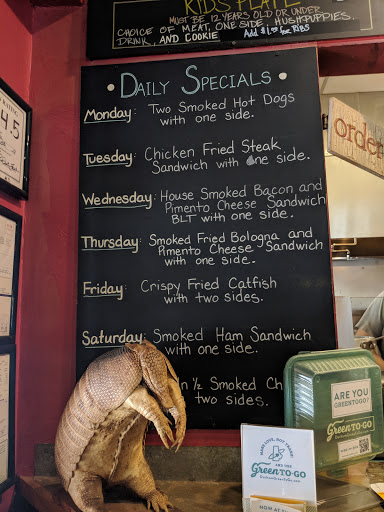 KIDS PLATE
MUST BE 12 YEARS OLD OR UNDER
CHOICE OF MEAT, ONE SIDE, HUSHPUPPIES,
DRINK, AND COOKIE
Add $1.50 for RIBS
• DAILY SPECIALS •
Monday: Two Smoked Hot Dogs
with one side.
Tuesday: Chicken Fried Steak
Sandwich with one side.
Wednesday: House Smoked Bacon and
Pimento Cheese Sandwich
BLT with one side.
Thursday: Smoked Fried Bologna and
Pimento Cheese Sandwich
with one side.
Friday: Crispy Fried Catfish
with two sides.
Saturday: Smoked Ham Sandwich
with one side.
½ Smoked Ch
two sides.
order
4.5
ARE YOU
GREENTOGO?
GREEN-TO-GO
GREENTO-GO